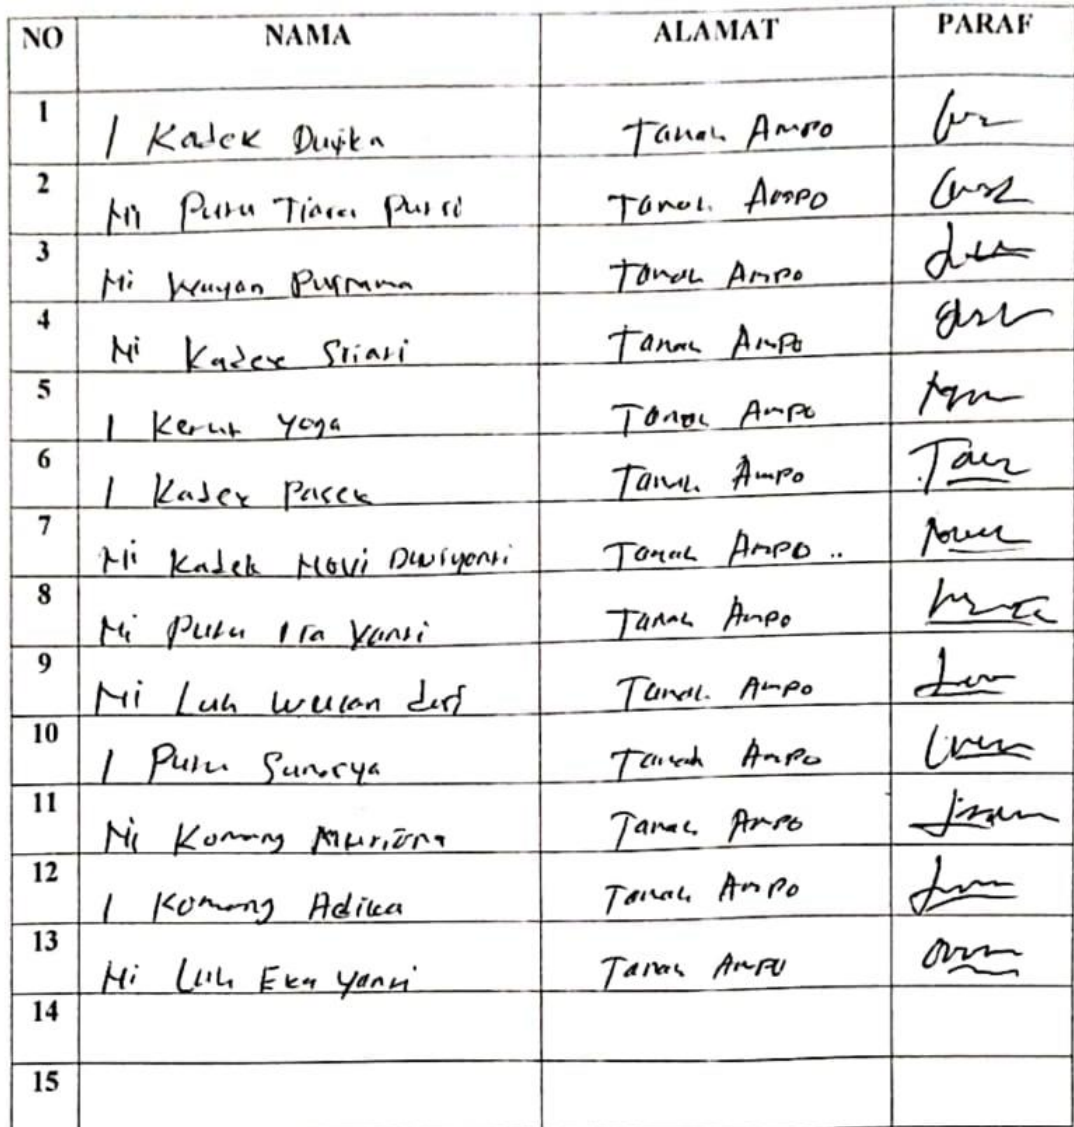 NO NAMA ALAMAT PARAF
1 I Kadek Dwika Tanah Ampo
2 Ni Putu Tiara Putri Tanah Ampo
3 Ni Wayan Purnama Tanah Ampo
4 Ni Kadek Sriasi Tanah Ampo
5 I Ketut Yoga Tanah Ampo
6 I Kadek Pasek Tanah Ampo
7 Ni Kadek Novi Dwiyanti Tanah Ampo ..
8 Ni Putu Ira Yanti Tanah Ampo
9 Ni Luh Wulan dari Tanah Ampo
10 I Putu Tanah Ampo
11 Ni Komang Tanah Ampo
12 I Komang Adika Tanah Ampo
13 Ni Luh Eka Yanti Tanah Ampo
14
15